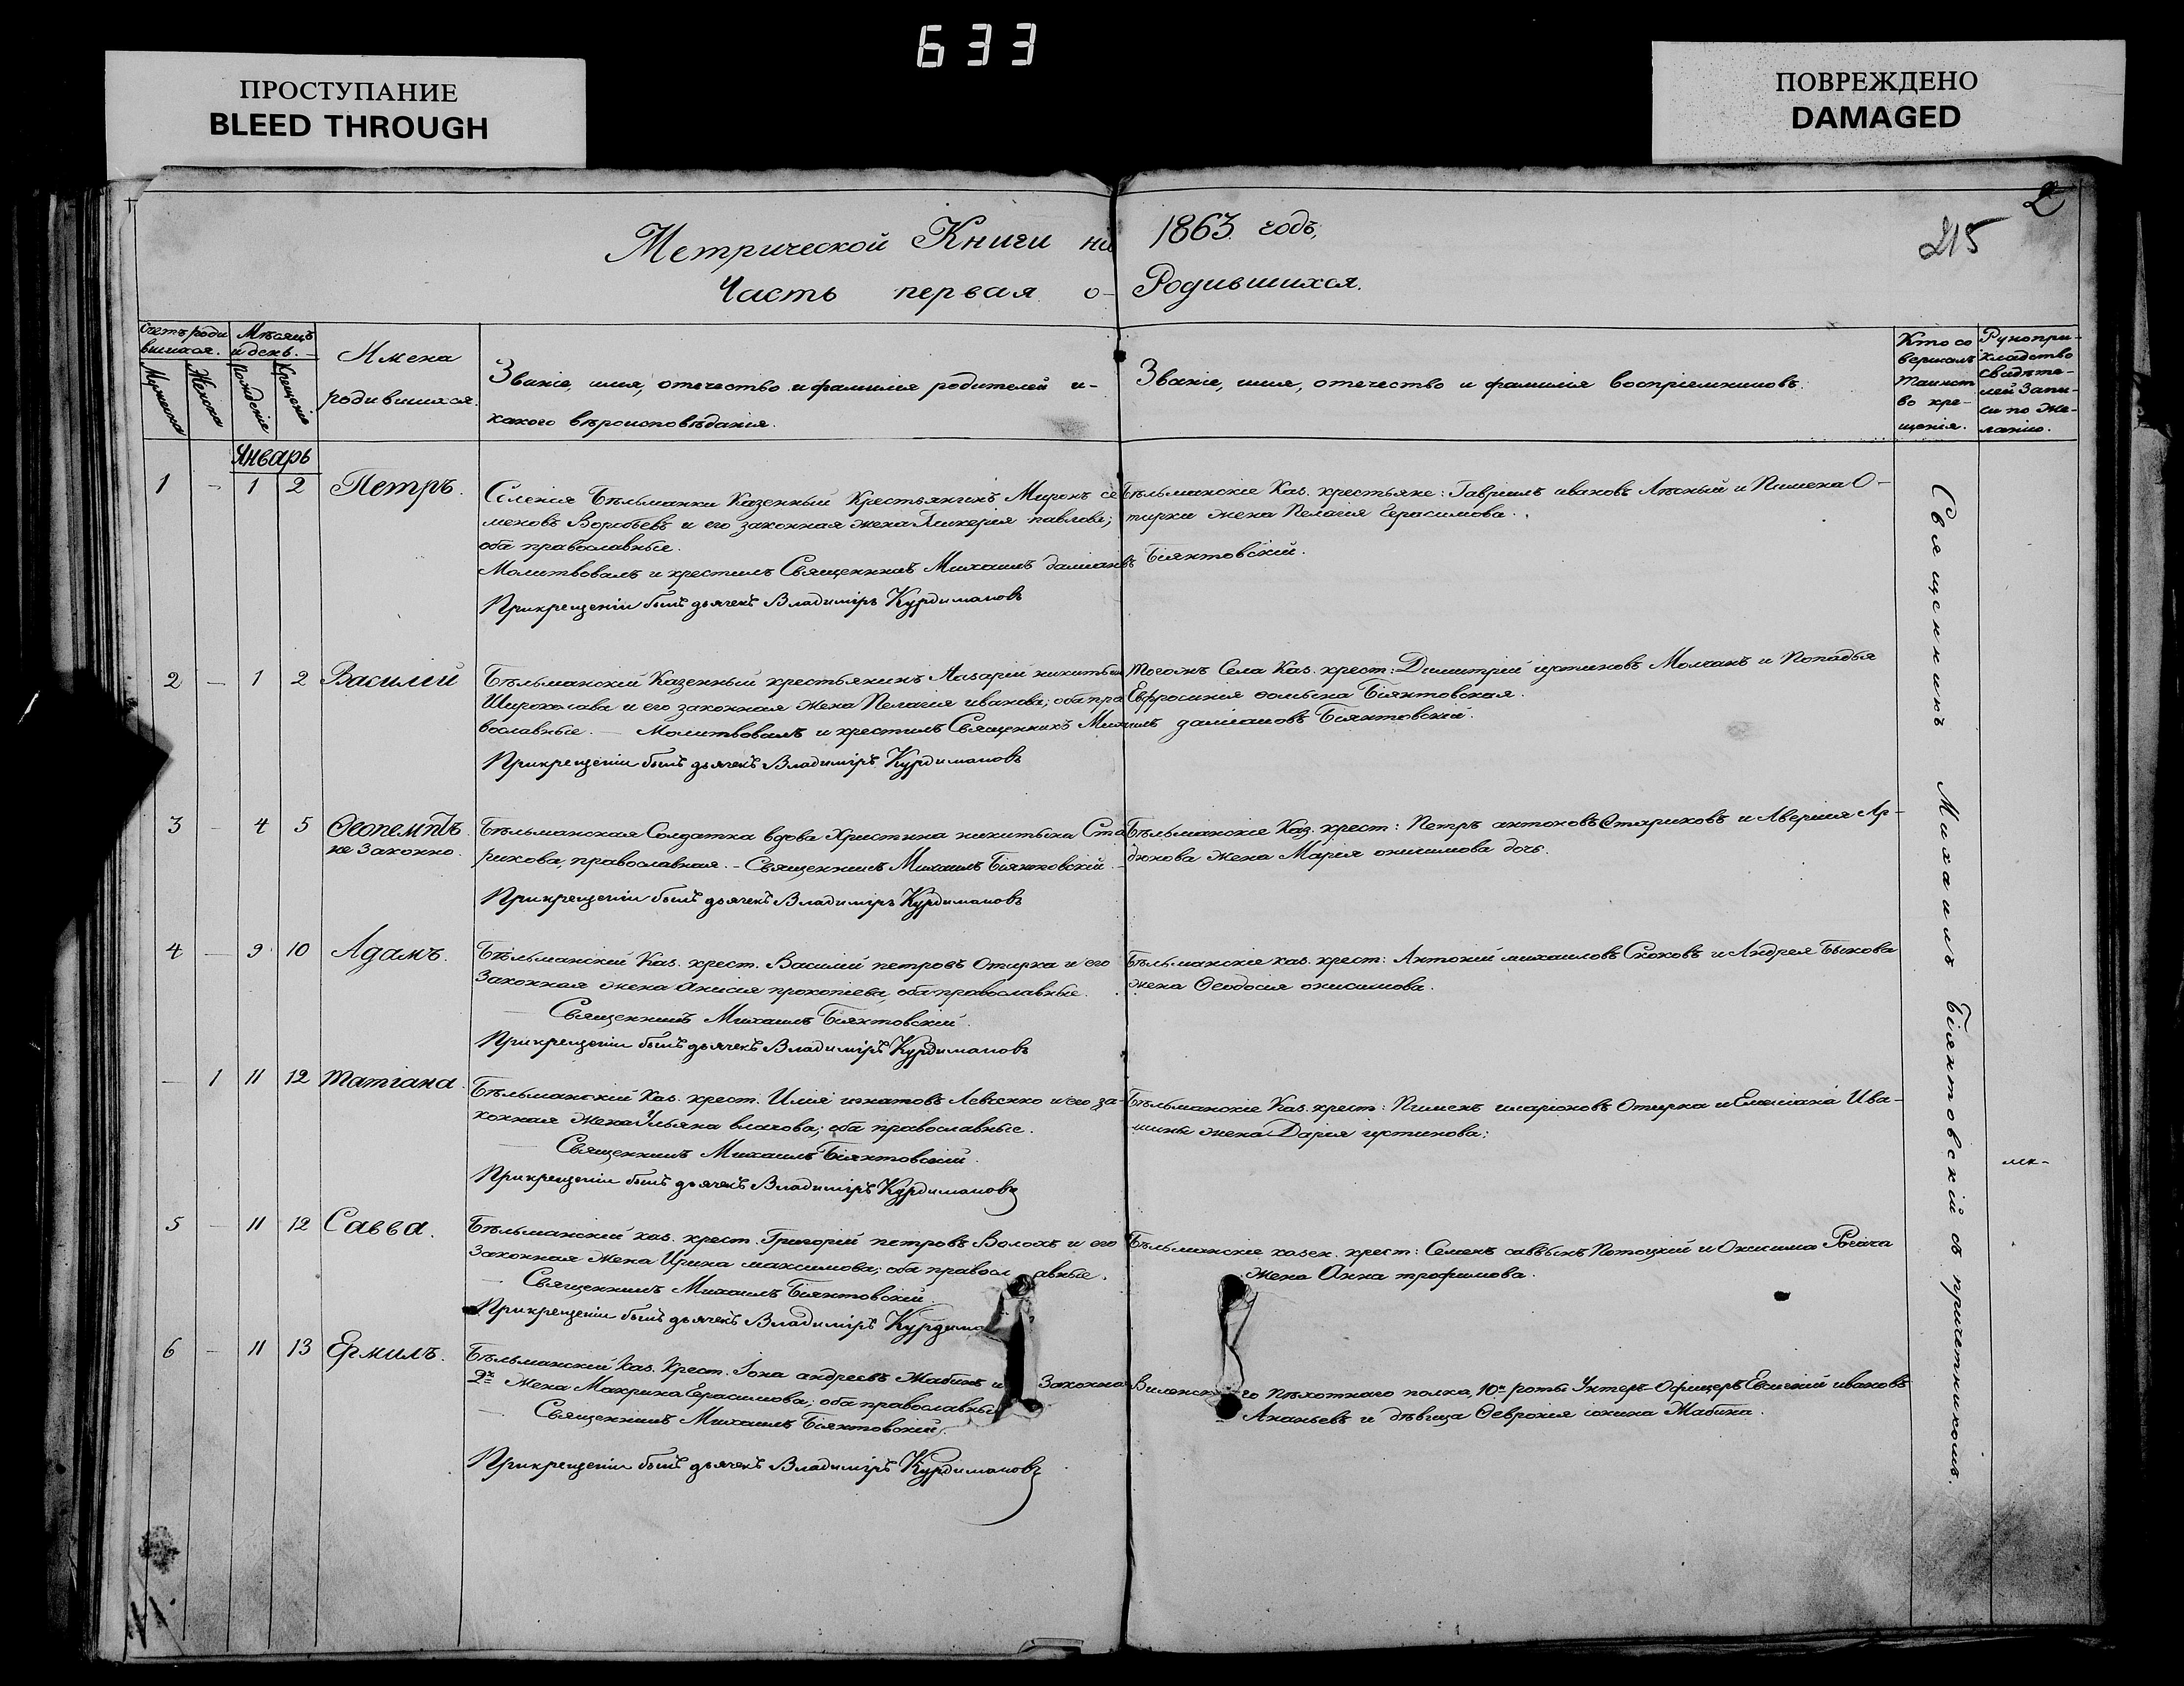 633
ПРОСТУПАНИЕ
BLEED THROUGH
ПОВРЕЖДЕНО
DAMAGED
2
215
Метрической Книги на 1863. годъ,
Часть первая о- Родившихся.
Счетъ роди
вшихся.
Мужеска
Женска
Мѣсяцъ
и день.
Рожденіе
Крещеніе
Имена
родившихся.
Званіе, имя, отечество и фамилія родителей и-
какого вѣроисповѣданія.
Званіе, имя, отечество и фамилія воспріемниковъ.
Кто со
вершалъ
таинст
во кре-
щенія.
Рукопри-
кладство
свидѣте-
лей запи-
си по же-
ланію.
Январь
1 - 1 2 Петръ.
Селенія Бѣльманки Казенный Крестьянинъ Миронъ се
меновъ Воробьевъ и его законная жена Гликерія павлова;
оба православные.
Молитвовалъ и крестилъ Священникъ Михаилъ даміановъ Біянтовскій.
Прикрещеніи былъ дьячекъ Владиміръ Курдимановъ
Бѣльманскіе Каз. крестьяне: Гавріилъ ивановъ Лѣсный и Пимена О-
тирки жена Пелагія Герасимова.
2 - 1 2 Василій
Бѣльманскій Казенный крестьянинъ Назарій никитинъ
Широколава и его законная жена Пелагія иванова; оба пра
вославные. - Молитвовалъ и крестилъ Священникъ Михаилъ даміановъ Біянтовскій.
Прикрещеніи былъ дьячекъ Владиміръ Курдимановъ
Тогожъ Села Каз. крест: Димитрій іустиновъ Молчанъ и Попадья
Евфросинія Біянтовская.
3 - 4 5 Ѳеопемптъ.
не законно.
Бѣльманская Солдатка вдова Христина никитьена Ста
рикова, православная. - Священникъ Михаилъ Біянтовскій.
Прикрещеніи былъ дьячекъ Владиміръ Курдимановъ
Бѣльманскіе Каз. крест: Петръ антоновъ Стариковъ и Аверкія Ар-
дюкова жена Марія онисимова дочь.
4 - 9 10 Адамъ.
Бѣльманскій Каз. крест. Василій петровъ Отирка и его
Законная жена Анисія прокопіева, оба православные.
Священникъ Михаилъ Біянтовскій.
Прикрещеніи былъ дьячекъ Владиміръ Курдимановъ
Бѣльманскіе каз. крест: Антоній михаиловъ Скоковъ и Андрея Быкова
жена Ѳеодосія онисимова.
- 1 11 12 Татіана.
Бѣльманскій Каз. крест. Илія игнатовъ Левенко и его за-
конная жена Ульяна власова; оба православные.
Священникъ Михаилъ Біянтовскій.
Прикрещеніи былъ дьячекъ Владиміръ Курдимановъ
Бѣльманскіе Каз. крест: Пименъ иларіоновъ Отирка и Емиліана Ива-
шины жена Дарія іустинова;
5 - 11 12 Савва.
Бѣльманскій каз. крест. Григорій петровъ Волохъ и его
Законная жена Ирина максимова; оба православные.
Священникъ Михаилъ Біянтовскій.
Прикрещеніи былъ дьячекъ Владиміръ Курдима
Бѣльманскіе казен. крест: Семенъ саввинъ Потоцкій и Онисима Рогача
жена Анна трофимова.
6 - 11 13 Ермилъ.
Бѣльманскій Каз. Крест. Іона андреевъ Жабинъ и Законная
2я жена Макрина Герасимова; оба православные
Священникъ Михаилъ Біянтовскій.
Прикрещеніи былъ дьячекъ Владиміръ Курдимановъ
Виленскаго пѣхотнаго полка, 10й роты Унтеръ-Офицеръ Евгеній ивановъ
Ананьевъ и дѣвица Ѳевронія іонина Жабина.
Священникъ Михаилъ Біянтовскій съ причетникомъ.